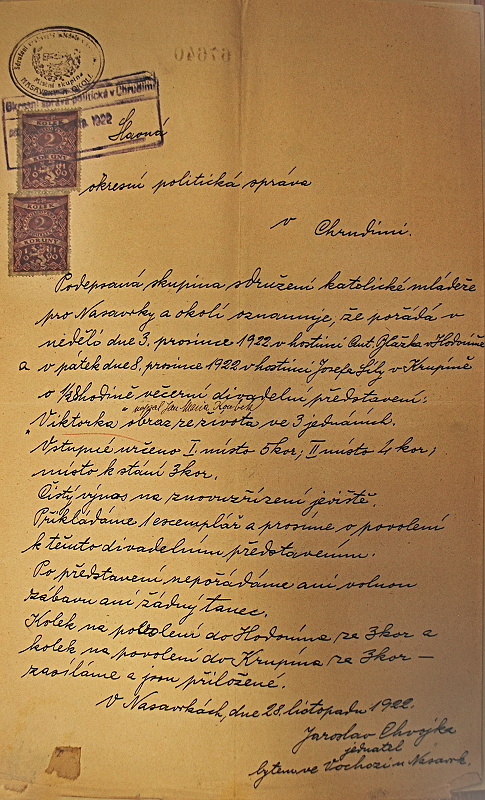 67640
Sdružení katolické mládeže
Místní skupina
NASAVRKY A OKOLÍ
Okresní správa politická v Chrudimi
1922
Slavná
KOLEK
2
KORUNY
okresní politická správa
v
Chrudimi.
KOLEK
2
KORUNY
Podepsaná skupina sdružení katolické mládeže
pro Nasavrky a okolí oznamuje, že pořádá v
neděli dne 3. prosince 1922 v hostinci Ant. v Hodoníně
a v pátek dne 8. prosince 1922 v hostinci Josefa v Krupíně
o ½8 hodině večerní divadelní představení:
napsal Jan Maria
"Viktorka" obraz ze života ve 3 jednáních.
Vstupné určeno I. místo 5 kor; II místo 4 kor;
místo k stání 3 kor.
Čistý výnos na znovuzřízení jeviště.
Přikládáme 1 escemplář a prosíme o povolení
k těmto divadelním představením.
Po představení nepořádáme ani volnou
zábavu ani žádný tanec.
Kolek na polovení do Hodonína za 3 kor a
kolek na povolení do Krupína za 3 kor —
zasíláme a jsou přiložené.
V Nasavrkách, dne 28. listopadu 1922.
Jaroslav Chvojka
jednatel
bytem ve Vochozí u Nasavrk.